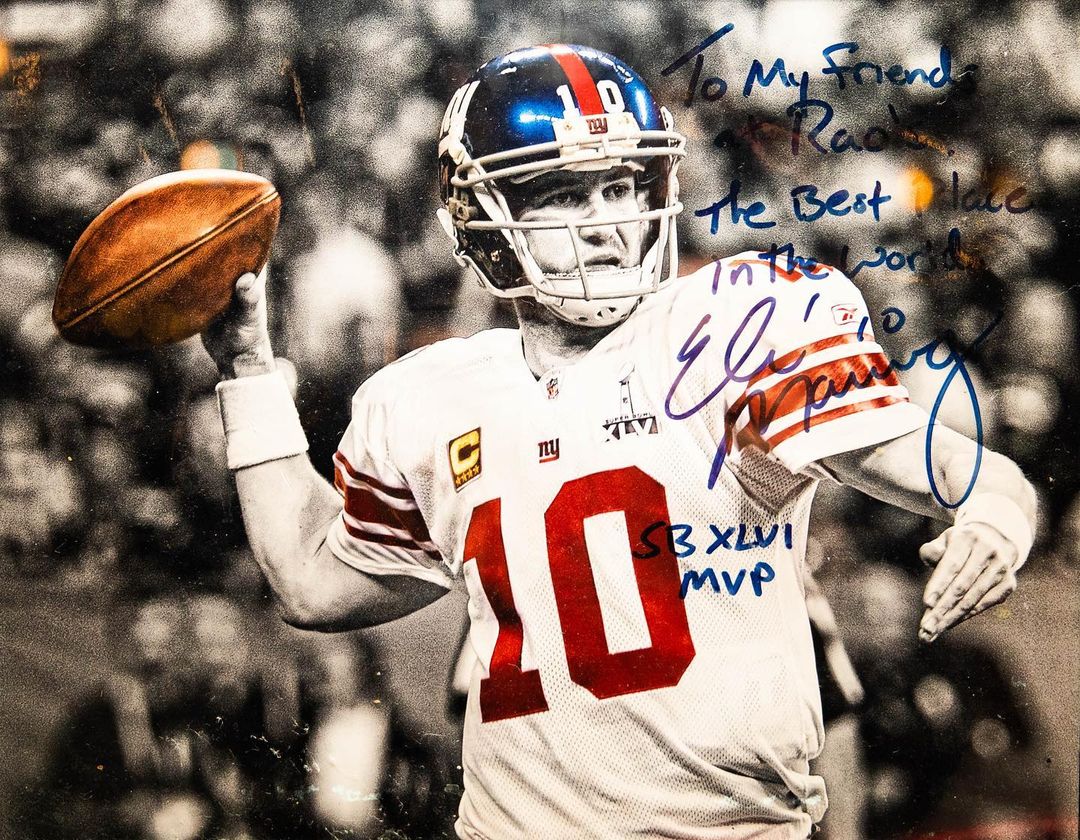 To My friends
at Rao's.
The Best Place
In the World
Eli Manning
10
SB XLVI
MVP
10
ny
C
ny
SUPER BOWL
XLVI
10